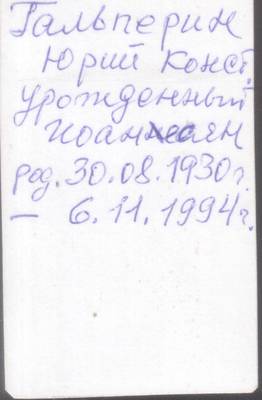 Гальперин
Юрий Конст.
Урожденный
Иоаннесян
род. 30.08.1930г.
— 6.11.1994г.